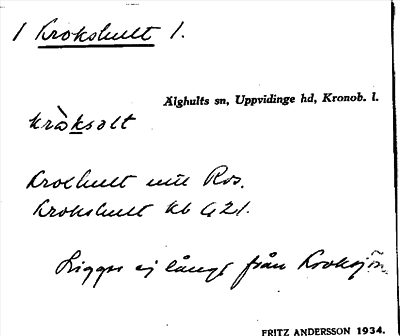 1 Krokshult 1.
Älghults sn, Uppvidinge hd, Kronob. l.
kròksolt
Kroshult mtl Ros.
Krokshult kb G 21.
Ligger ej långt från Kroksjön.
FRITZ ANDERSSON 1934.